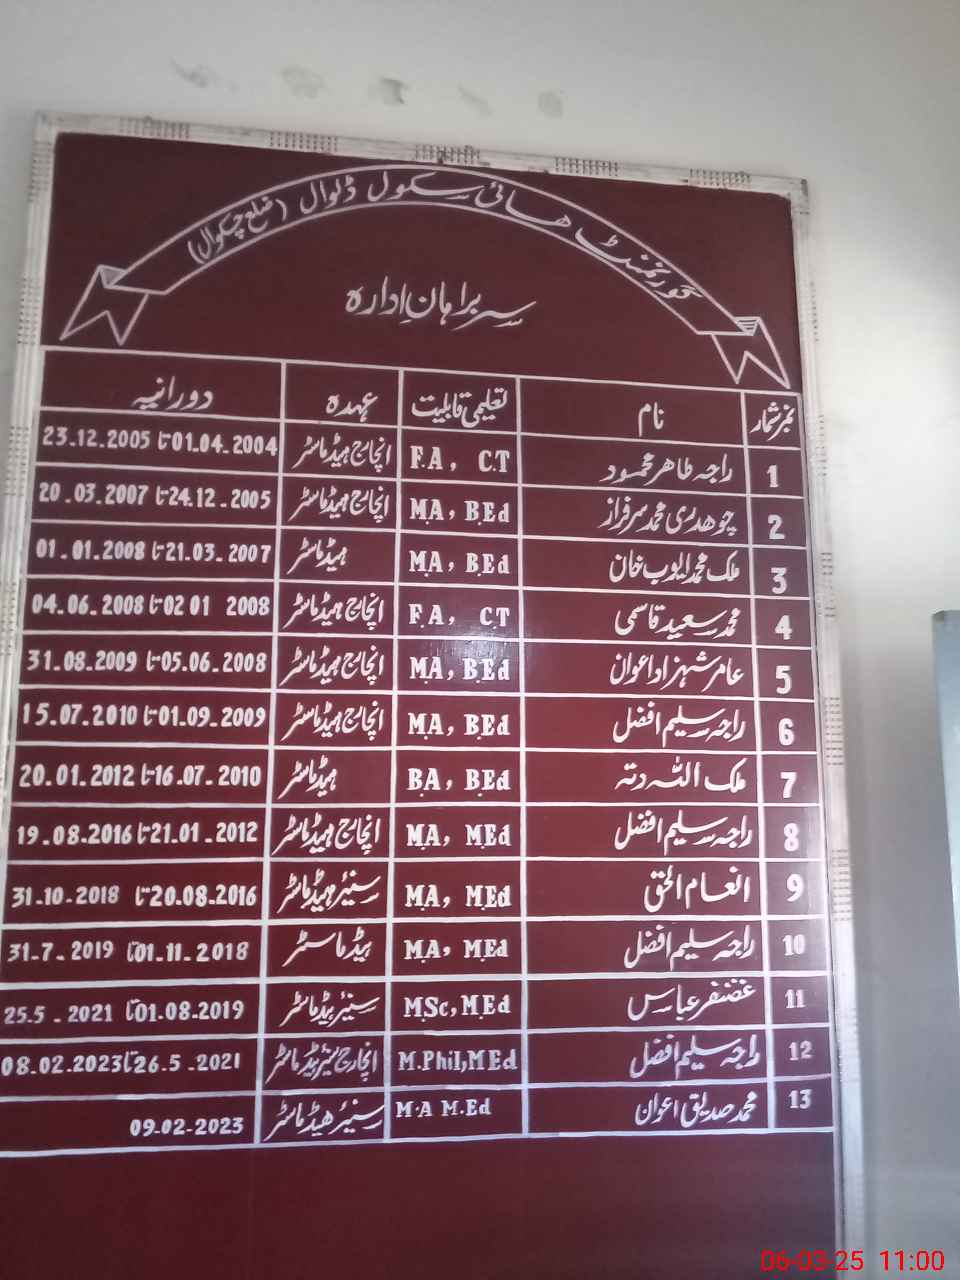 گورنمنٹ ھائی سکول ڈلوال (ضلع چکوال)
سربراہان اِدارہ
نمبر شمار نام تعلیمی قابلیت عہدہ دورانیہ
1 راجہ طاھر محمود F.A, C.T انچارج ہیڈماسٹر 01.04.2004 تا 23.12.2005
2 چوھدری محمد سرفراز M.A, B.Ed انچارج ہیڈماسٹر 24.12.2005 تا 20.03.2007
3 ملک محمد ایوب خان M.A, B.Ed ہیڈماسٹر 21.03.2007 تا 01.01.2008
4 محمد سعید قاسمی F.A, C.T انچارج ہیڈماسٹر 02 01 2008 تا 04.06.2008
5 عامر شہزاد اعوان M.A, B.Ed انچارج ہیڈماسٹر 05.06.2008 تا 31.08.2009
6 راجہ سلیم افضل M.A, B.Ed انچارج ہیڈماسٹر 01.09.2009 تا 15.07.2010
7 ملک اللہ دتہ B.A, B.Ed ہیڈماسٹر 16.07.2010 تا 20.01.2012
8 راجہ سلیم افضل M.A, M.Ed انچارج ہیڈماسٹر 21.01.2012 تا 19.08.2016
9 انعام الحق M.A, M.Ed سنیئر ہیڈماسٹر 20.08.2016 تا 31-10-2018
10 راجہ سلیم افضل M.A, M.Ed ہیڈماسٹر 01-11-2018 تا 31-7-2019
11 غضنفر عباس M.Sc, M.Ed سنیئر ہیڈماسٹر 01-08-2019 تا 25.5-2021
12 راجہ سلیم افضل M.Phil, M.Ed انچارج سنیئر ہیڈماسٹر 26.5-2021 تا 08.02.2023
13 محمد صدیق اعوان M.A M.Ed سنیئر ھیڈماسٹر 09-02-2023
06-03-25 11:00